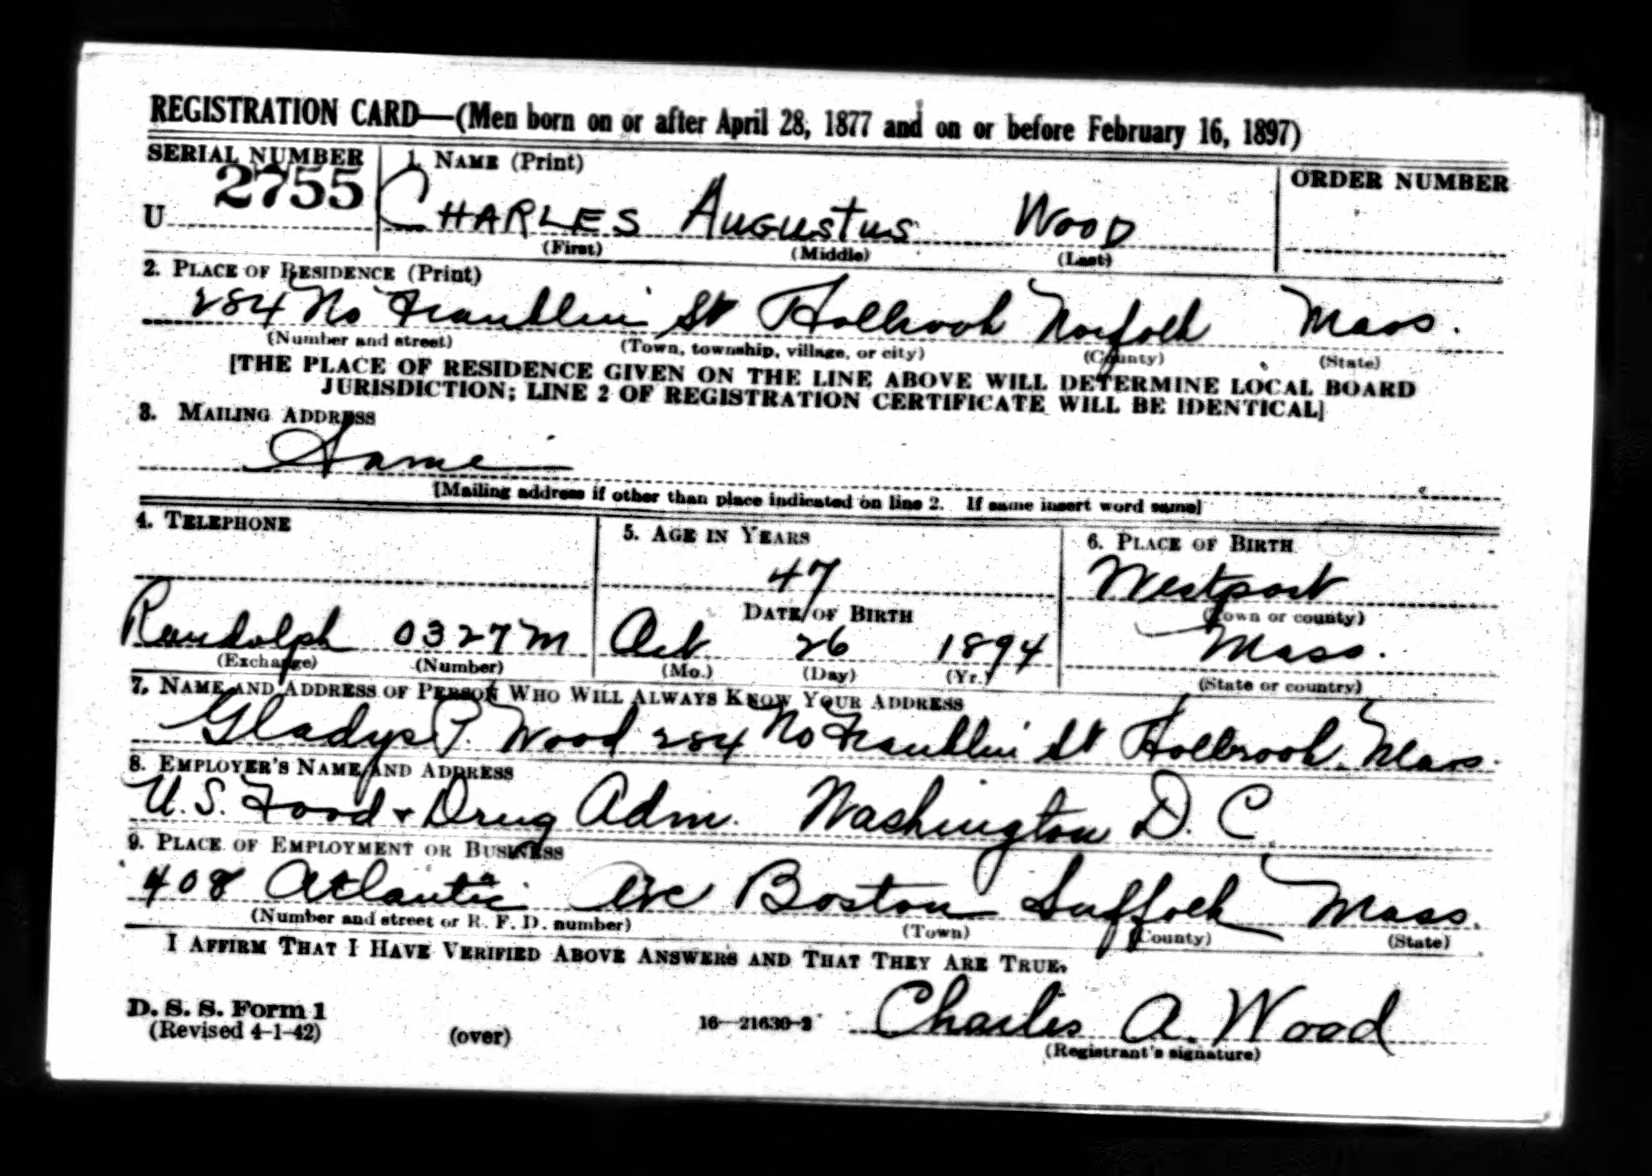 REGISTRATION CARD—(Men born on or after April 28, 1877 and on or before February 16, 1897)
SERIAL NUMBER
U 2755
1. NAME (Print)
CHARLES AUGUSTUS WOOD
(First) (Middle) (Last)
ORDER NUMBER
2. PLACE OF RESIDENCE (Print)
284 No Franklin St Holbrook Norfolk Mass.
(Number and street) (Town, township, village, or city) (County) (State)
[THE PLACE OF RESIDENCE GIVEN ON THE LINE ABOVE WILL DETERMINE LOCAL BOARD
JURISDICTION; LINE 2 OF REGISTRATION CERTIFICATE WILL BE IDENTICAL]
3. MAILING ADDRESS
Same
[Mailing address if other than place indicated on line 2. If same insert word same]
4. TELEPHONE
Randolph 0327M
(Exchange) (Number)
5. AGE IN YEARS
47
DATE OF BIRTH
Oct 26 1894
(Mo.) (Day) (Yr.)
6. PLACE OF BIRTH
Westport
(Town or county)
Mass.
(State or country)
7. NAME AND ADDRESS OF PERSON WHO WILL ALWAYS KNOW YOUR ADDRESS
Gladys P. Wood 284 No Franklin St Holbrook, Mass.
8. EMPLOYER'S NAME AND ADDRESS
U.S. Food & Drug Adm. Washington D.C.
9. PLACE OF EMPLOYMENT OR BUSINESS
408 Atlantic Ave Boston Suffolk Mass.
(Number and street or R. F. D. number) (Town) (County) (State)
I AFFIRM THAT I HAVE VERIFIED ABOVE ANSWERS AND THAT THEY ARE TRUE.
D. S. S. Form 1
(Revised 4-1-42) (over) 16—21630-2
Charles A. Wood
(Registrant's signature)